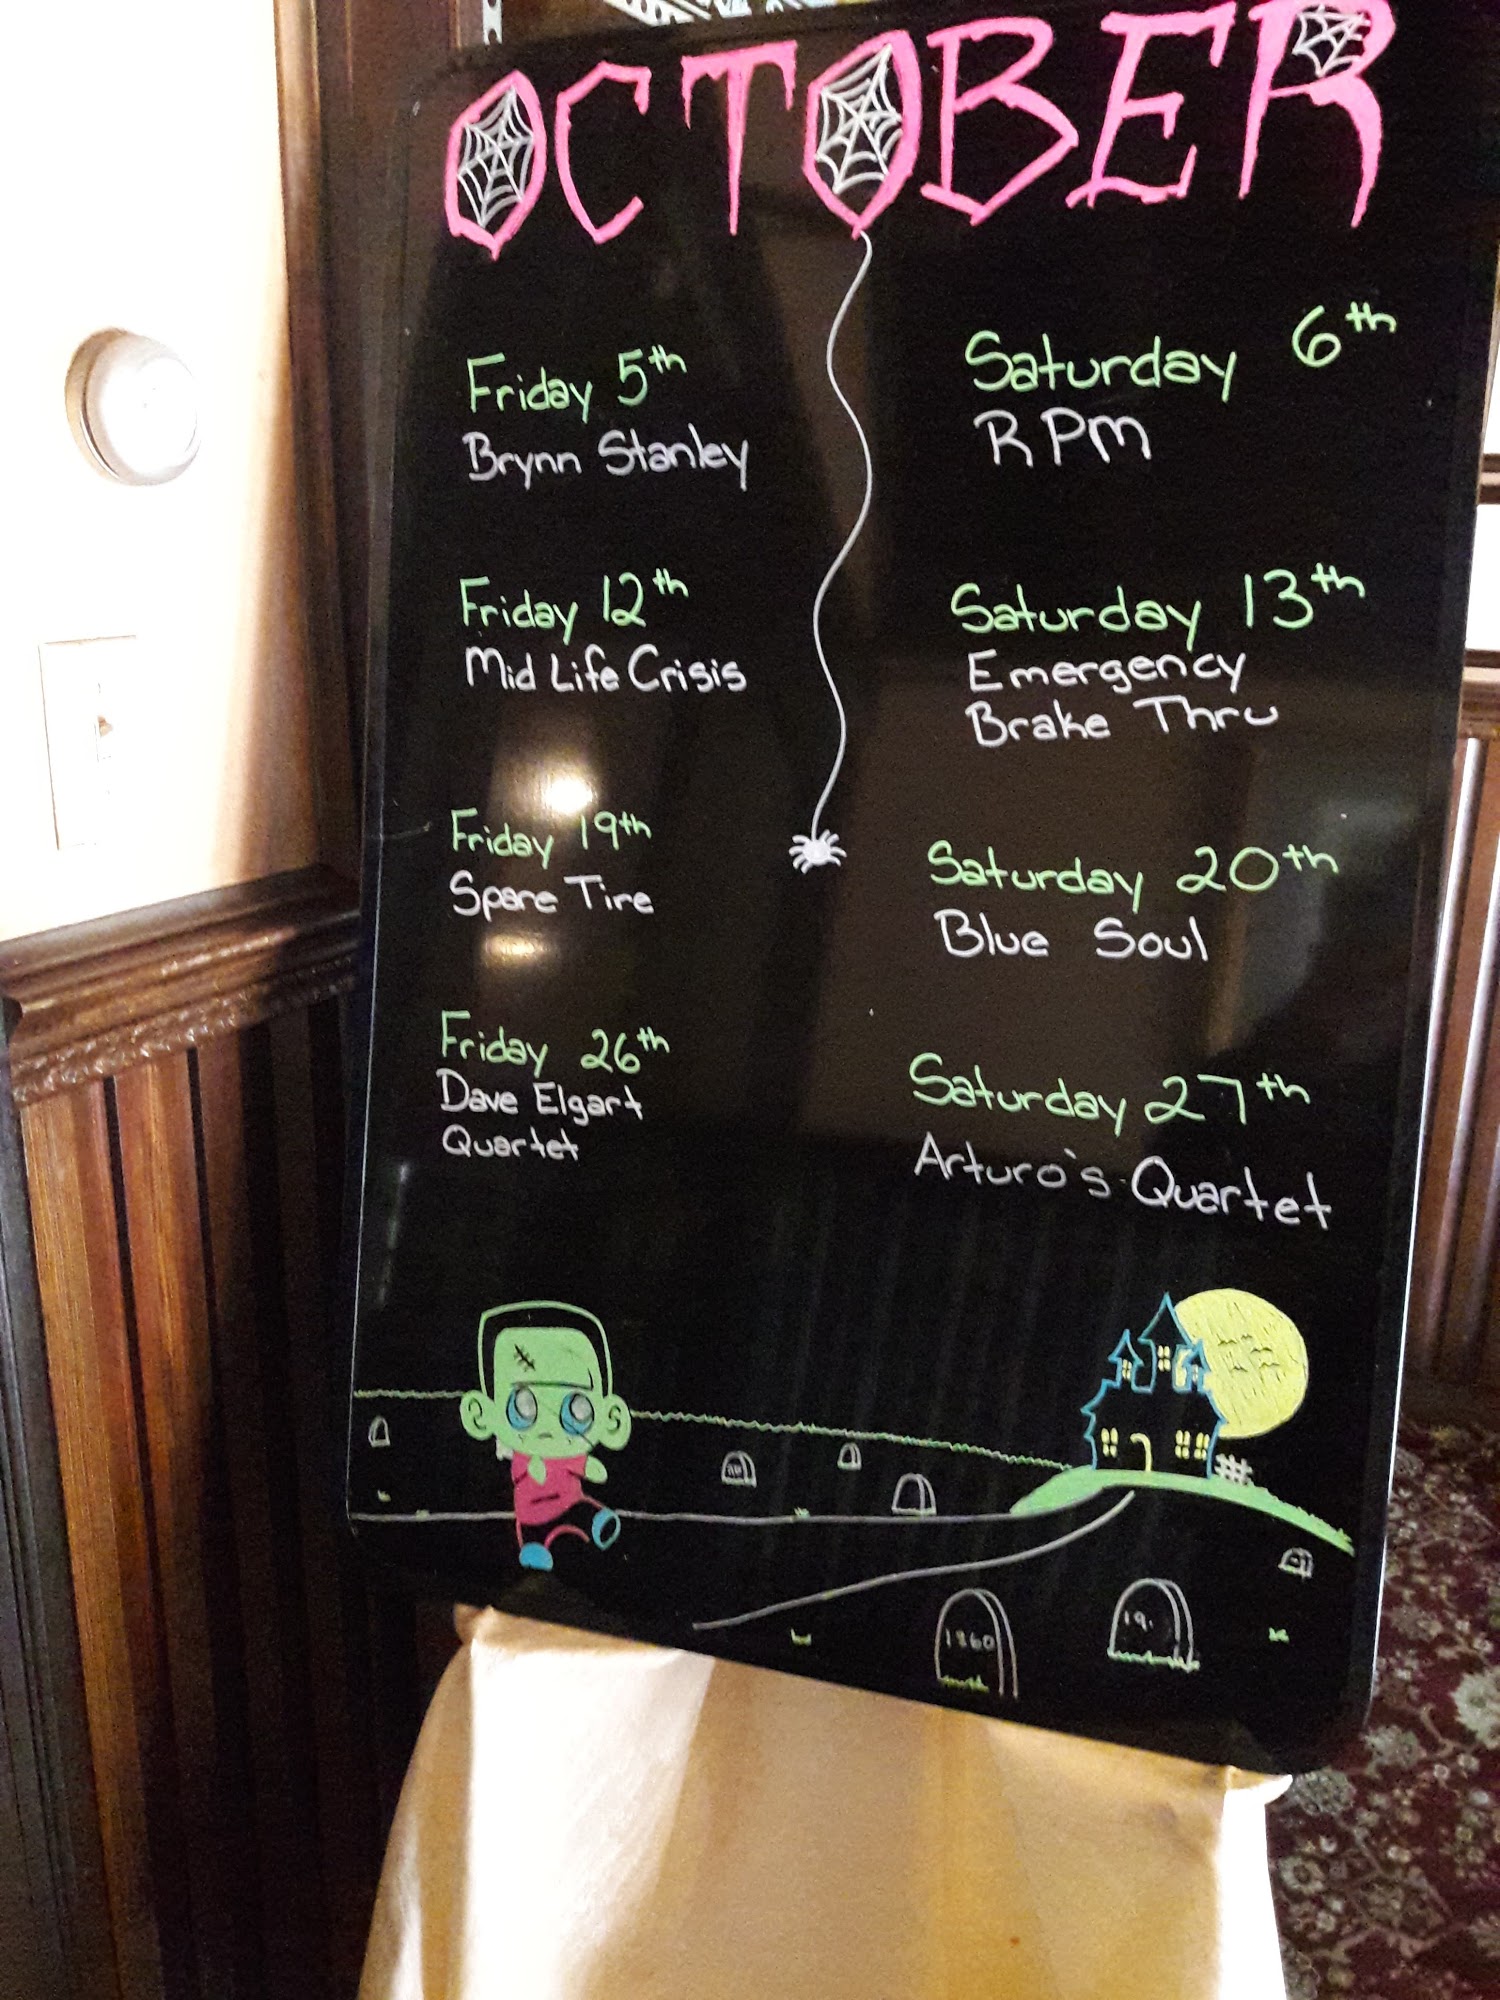 OCTOBER
Friday 5th
Brynn Stanley
Saturday 6th
RPM
Friday 12th
Mid Life Crisis
Saturday 13th
Emergency
Brake Thru
Friday 19th
Spare Tire
Saturday 20th
Blue Soul
Friday 26th
Dave Elgart
Quartet
Saturday 27th
Arturo's Quartet
1860
19.